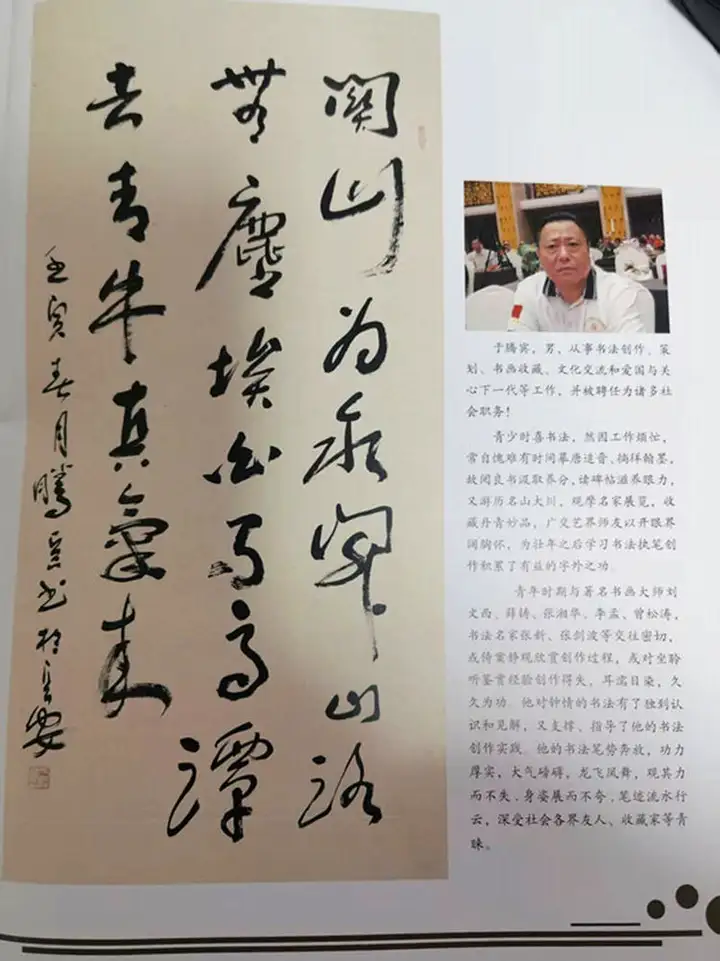 関山为山路
無塵埃白马高譚
去青牛真氣来
壬寅春月腾宾书於长安
于腾宾，男、从事书法创作、策
划、书画收藏、文化交流和爱国与关
心下一代等工作，并被聘任为诸多社
会职务！
青少时喜书法，然因工作烦忙，
常自愧难有时间摹唐追晋、徜徉翰墨，
故阅良书汲取养分，读碑帖滋养眼力，
又游历名山大川，观摩名家展览，收
藏丹青妙品，广交艺界师友以开眼界
阔胸怀，为壮年之后学习书法执笔创
作积累了有益的字外之功。
青年时期与著名书画大师刘
文西、薛铸、张湘华、李孟、曾松涛，
书法名家张新、张剑波等交往密切，
或倚案静观欣赏创作过程，或对坐聆
听鉴赏经验创作得失，耳濡目染，久
久为功。他对钟情的书法有了独到认
识和见解，又支撑、指导了他的书法
创作实践。他的书法笔势奔放，功力
厚实，大气磅礴，龙飞凤舞，观其力
而不失，身姿展而不夸，笔迹流水行
云，深受社会各界友人、收藏家等青
睐。